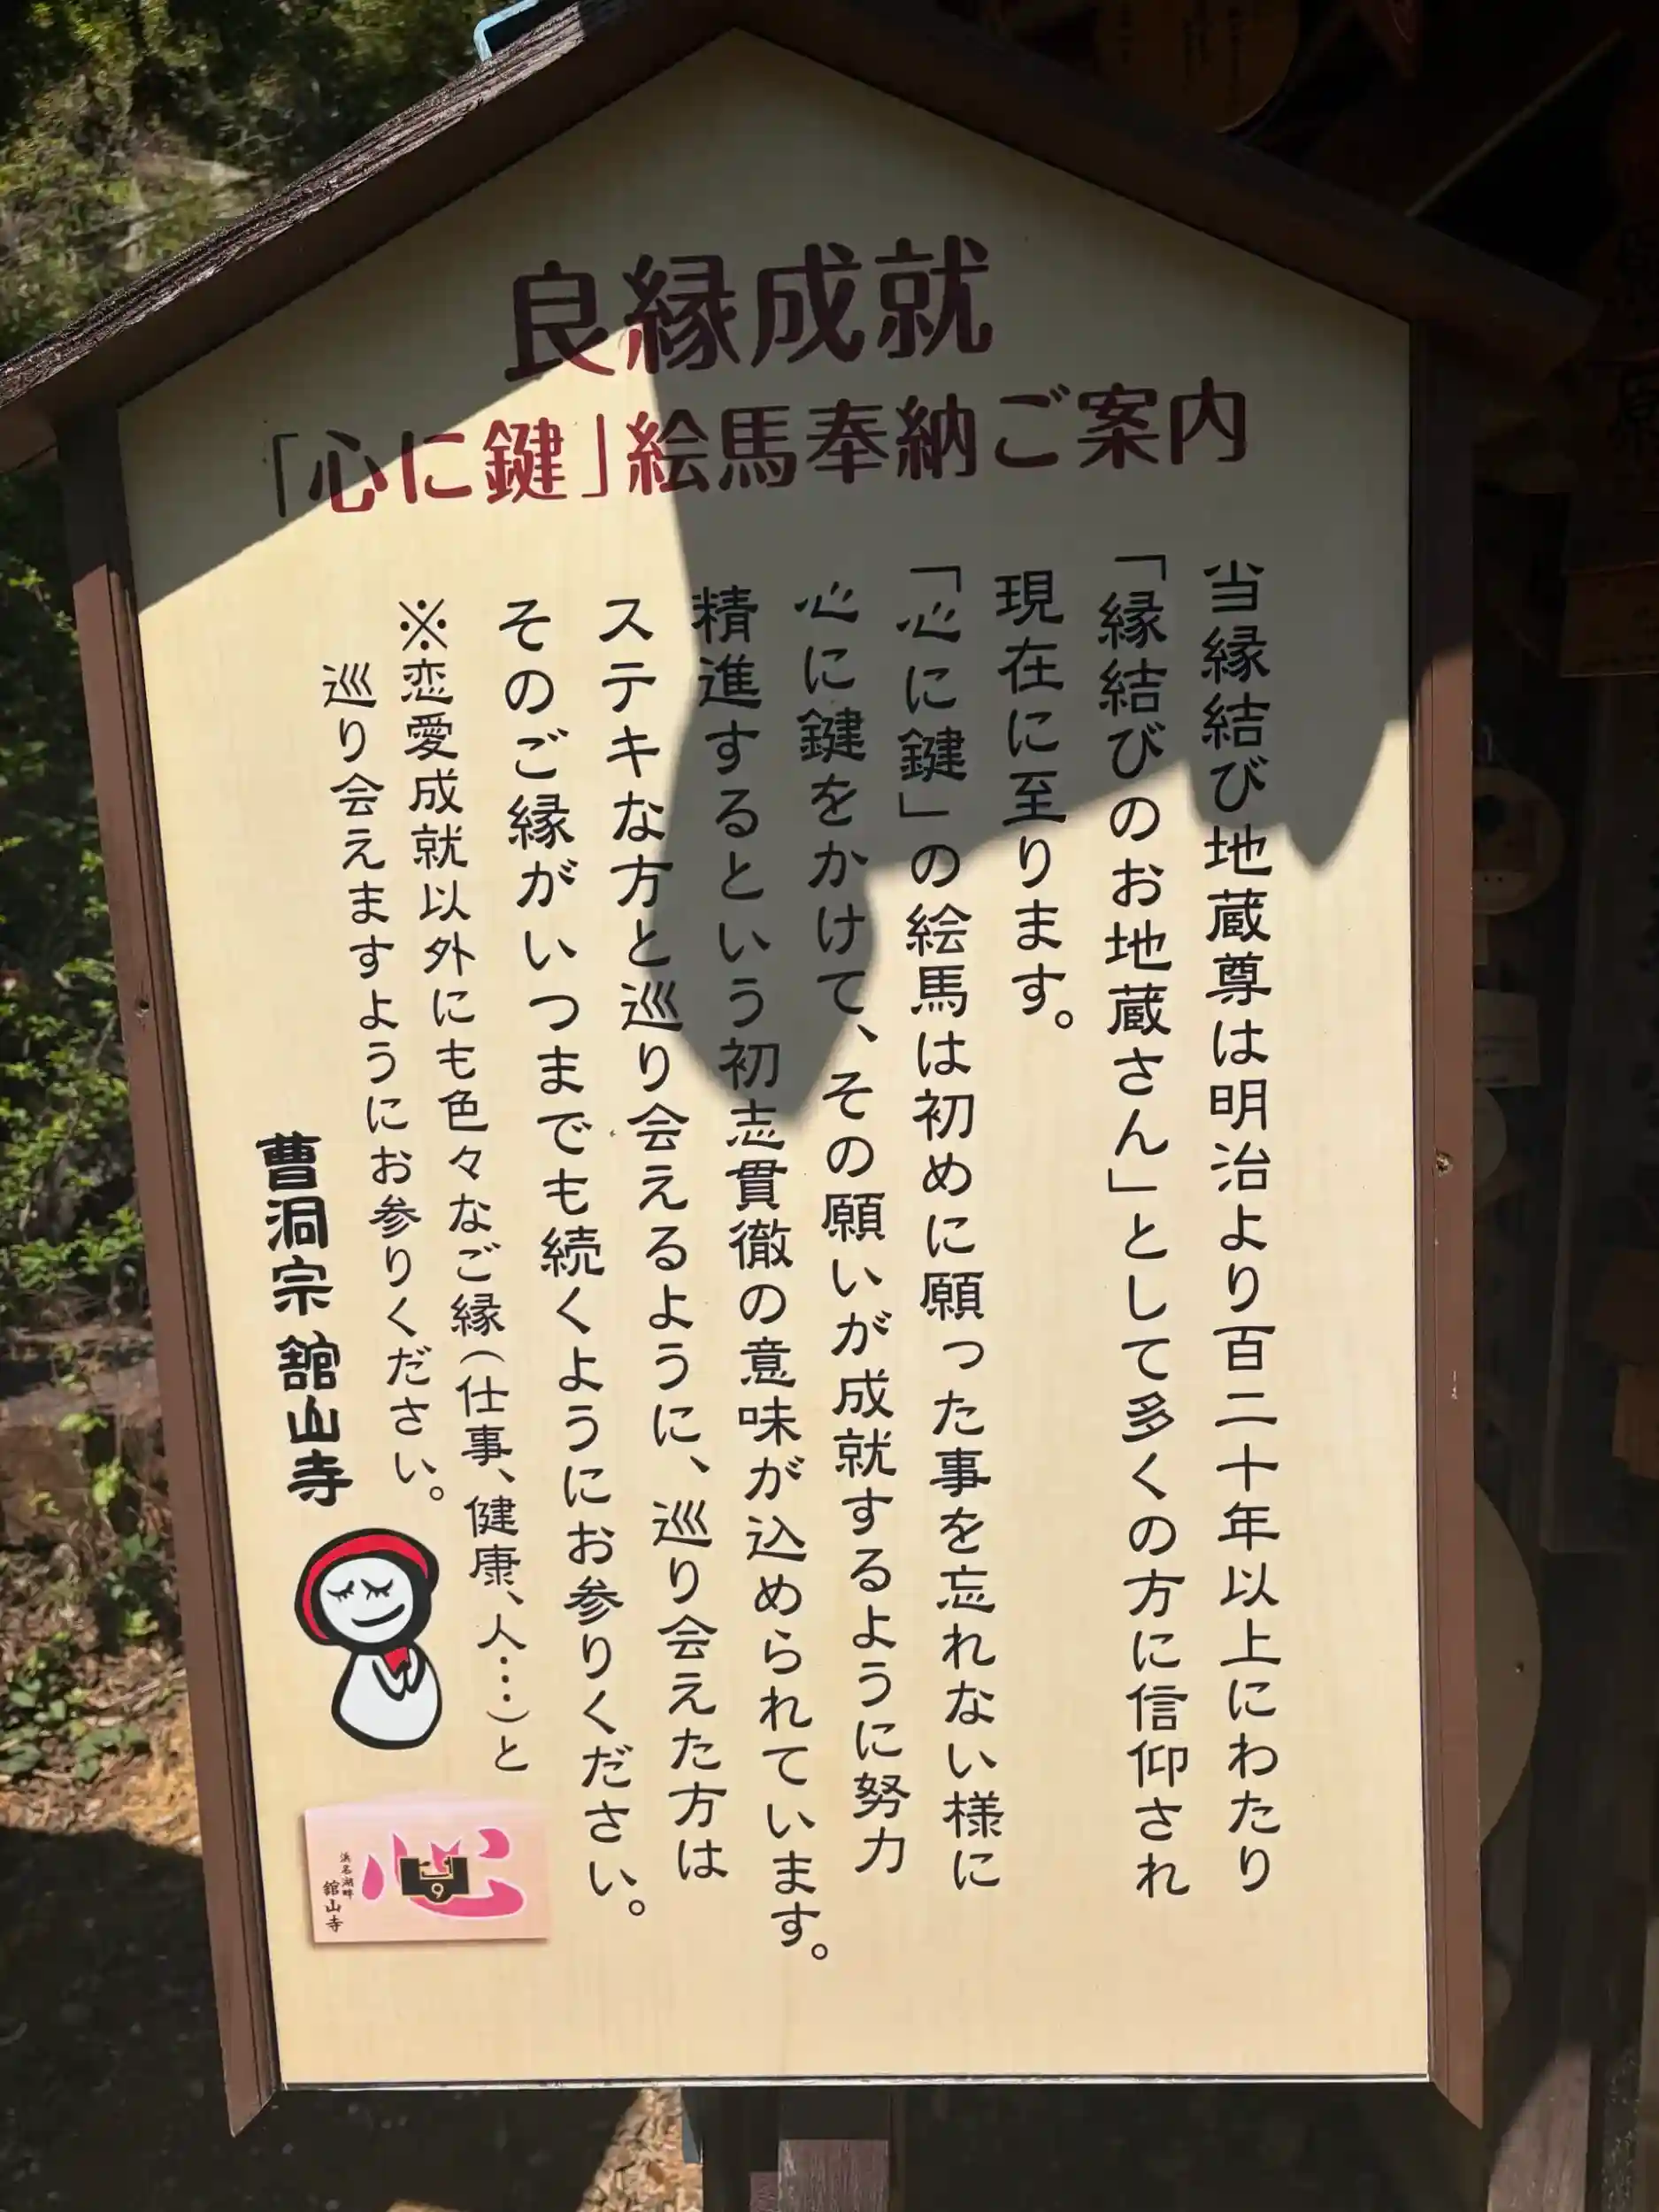 良縁成就
「心に鍵」絵馬奉納ご案内
当縁結び地蔵尊は明治より百二十年以上にわたり
「縁結びのお地蔵さん」として多くの方に信仰され
現在に至ります。
「心に鍵」の絵馬は初めに願った事を忘れない様に
心に鍵をかけて、その願いが成就するように努力
精進するという初志貫徹の意味が込められています。
ステキな方と巡り会えるように、巡り会えた方は
そのご縁がいつまでも続くようにお参りください。
※恋愛成就以外にも色々なご縁(仕事、健康、人…)と
巡り会えますようにお参りください。
曹洞宗 舘山寺
心
9
浜名湖畔
舘山寺